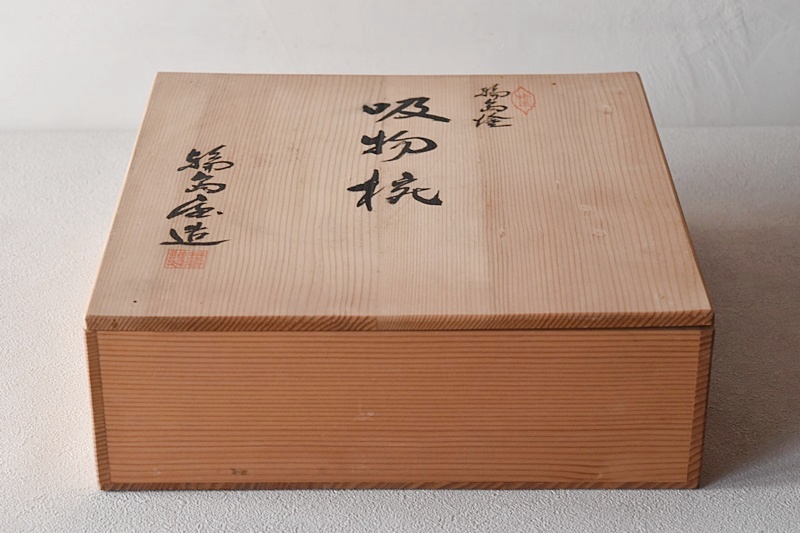 輪島塗
吸物椀
輪島屋造